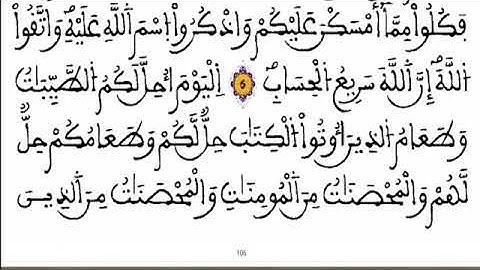 فَكُلُواْ مِمَّآ أَمْسَكْنَ عَلَيْكُمْ وَاذْكُرُواْ اِسْمَ اَللَّهِ عَلَيْهِ وَاتَّقُواْ
اَللَّهَ إِنَّ اَللَّهَ سَرِيعُ اُلْحِسَابِ 6 اِلْيَوْمَ أُحِلَّ لَكُمُ اُلطَّيِّبَٰتُ
وَطَعَامُ اُلذِينَ أُوتُواْ اُلْكِتَٰبَ حِلٌّ لَّكُمْ وَطَعَامُكُمْ حِلٌّ
لَّهُمْ وَالْمُحْصَنَٰتُ مِنَ اَلْمُومِنَٰتِ وَالْمُحْصَنَٰتُ مِنَ اَلذِينَ
106